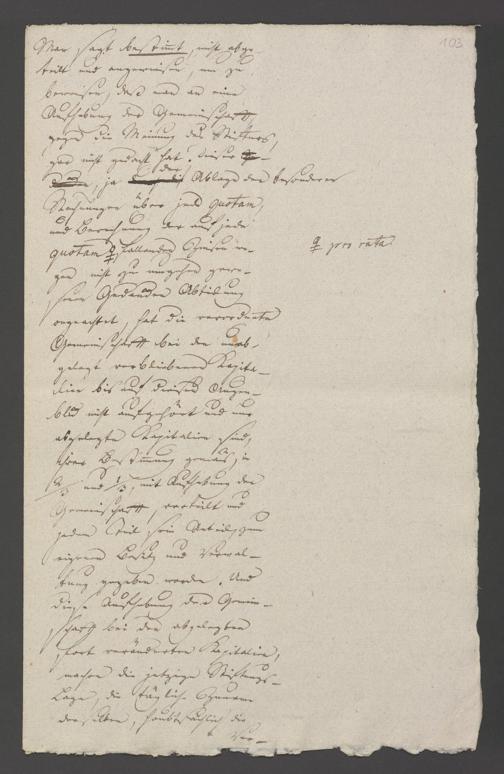 103
Man sagt bestimmt, nicht abge-
teilt und angewiesen, um zu
beweisen, daß man an eine
Aufhebung der Gemeinschaft
gegen die Meinung des Stifters,
gar nicht gedacht hat. Dieser
ja die Ablage der besonderen
Rechnungen über jede quotam,
und Berechnung der auf jede
quotam fallenden Zinsen we-
gen nicht zu umgehen gewe-
senen Gedanken Abteilung
ongeachtet, hat die verordnete
Gemeinschaft bei den unab-
gelegt verbliebenen Kapita-
lien bis auf diesen Augen-
blick nicht aufgehört und nur
abgelegte Kapitalien sind,
ihrer Bestimmung gemäß, in
2/3 und 1/3, mit Aufhebung der
Gemeinschaft, verteilt und
jedem Teil sein Anteil zum
eigenen Besitz und Verwal-
tung gegeben worden. Und
diese Aufhebung der Gemein-
schaft bei den abgelegten
fort veränderten Kapitalien,
machen die jetzige Stiftungs-
Lage, die tägliche
derselben, hauptsächlich die
Ver-
pro rata